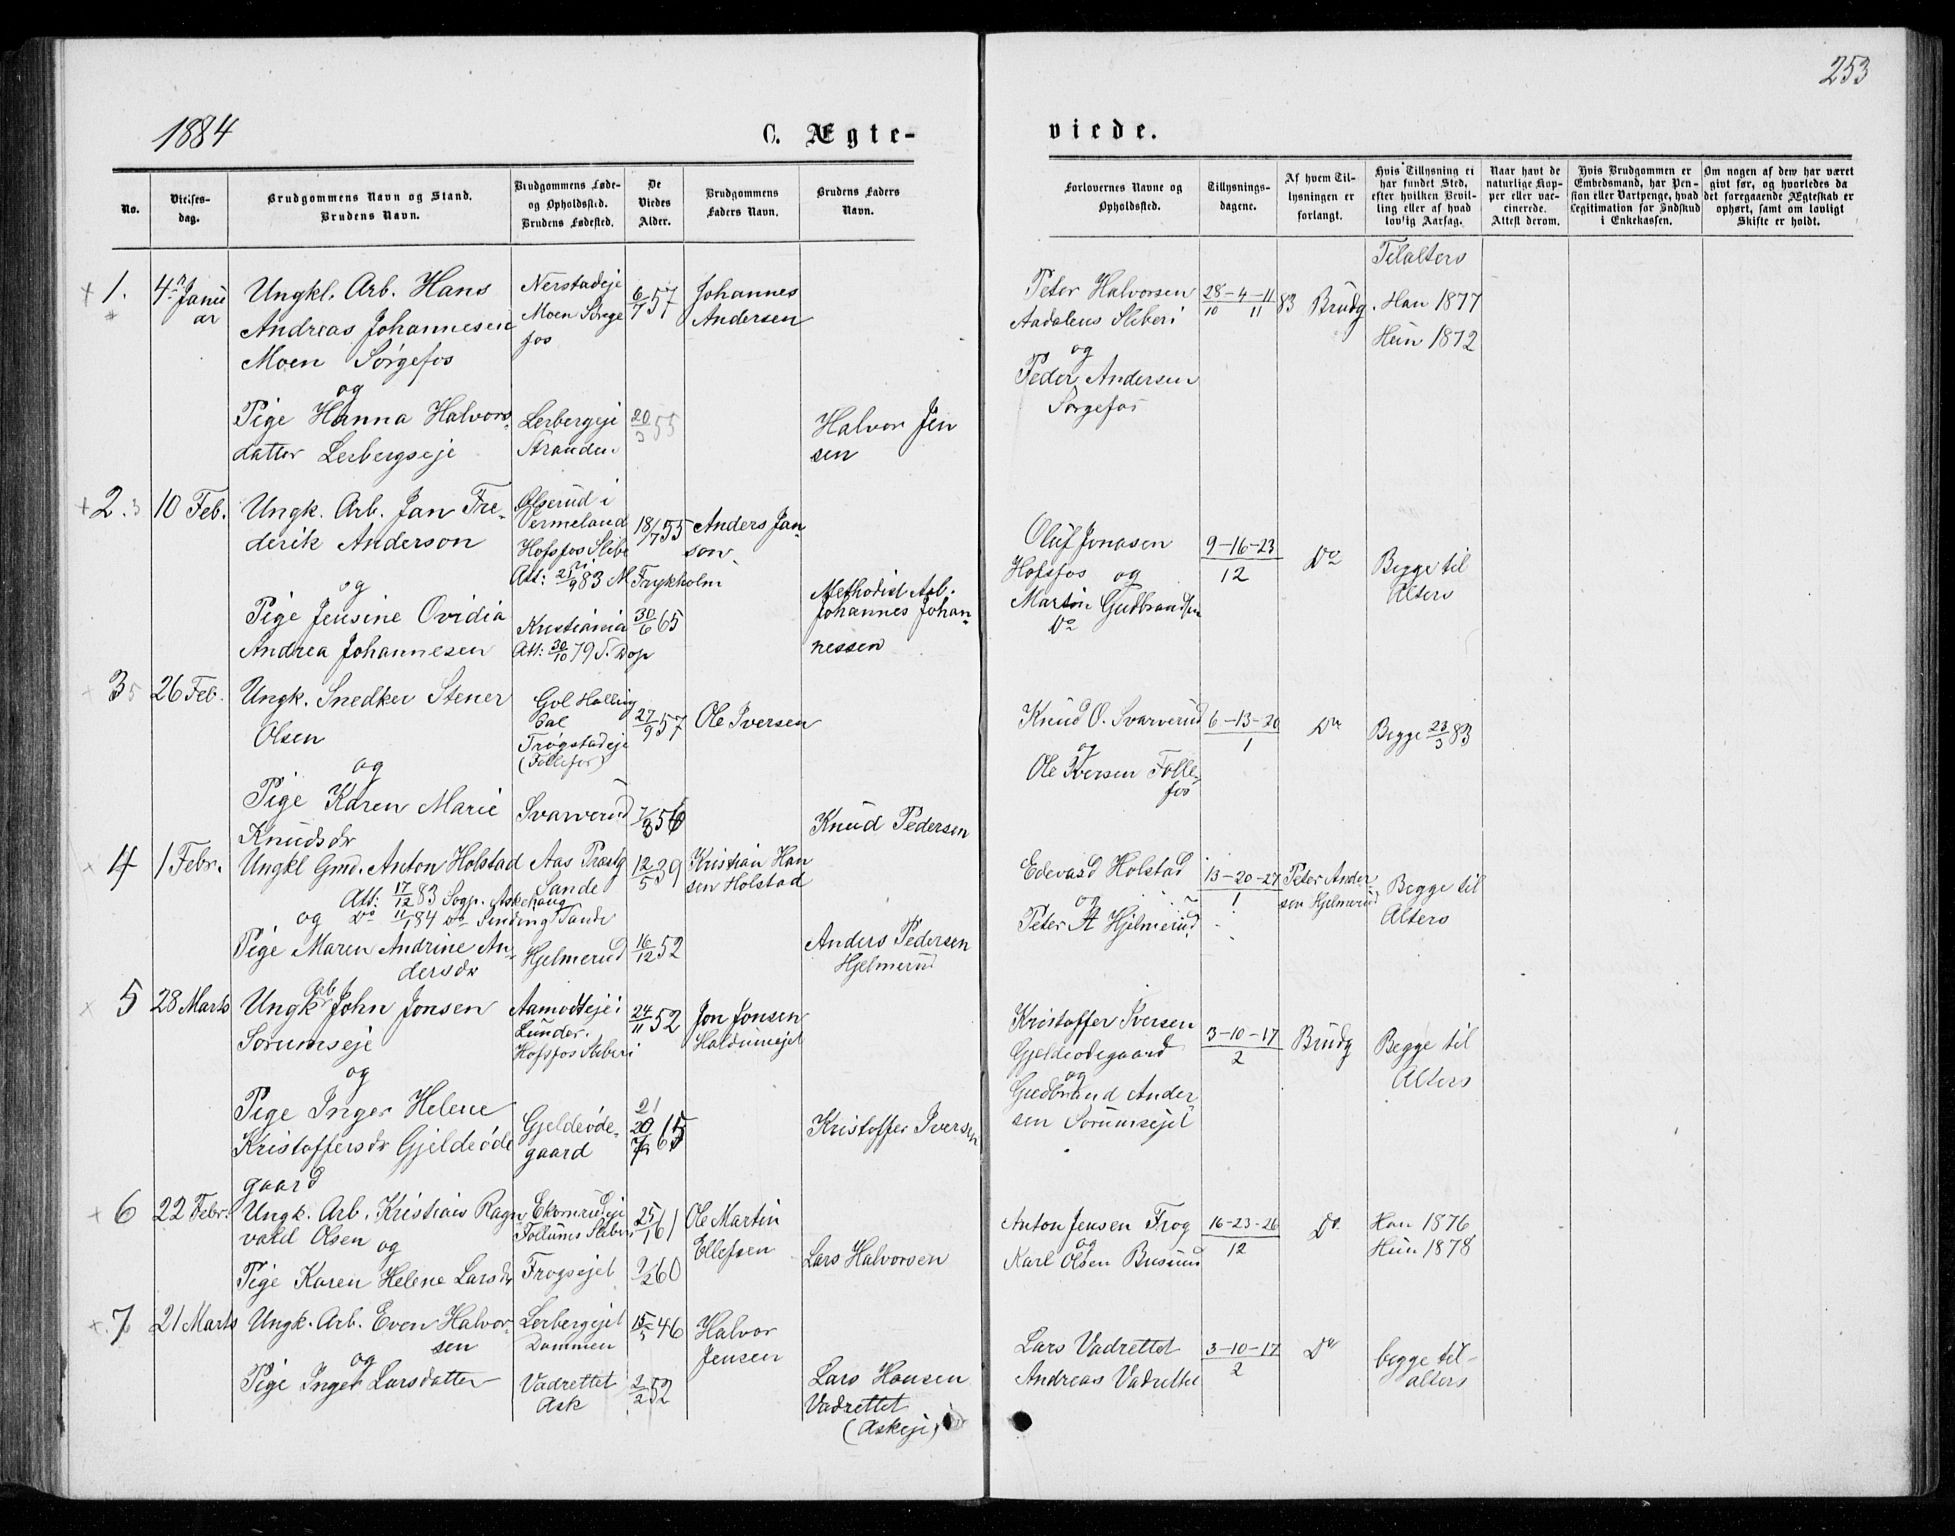 253
1884
C. Ægte-
viede.
No.
Vielses-
dag.
Brudgommens Navn og Stand.
Brudens Navn.
Brudgommens Føde-
og Opholdssted.
Brudens Fødested.
De
Viedes
Alder.
Brudgommens
Faders Navn.
Brudens Faders
Navn.
Forlovernes Navne og
Opholdssted.
Tillysnings-
dagene.
Af hvem Til-
lysningen er
forlangt.
Hvis Tillysning ei
har fundet Sted,
efter hvilken Bevil-
ling eller af hvad
lovlig Aarsag.
Naar havt de
naturlige Kop-
per eller vac-
cinerede.
Attest derom.
Hvis Brudgommen er
Embedsmand, har Pen-
sion eller Vartpenge, hvad
Legitimation for Indskud
i Enkekassen.
Om nogen af dem har været
givt før, og hvorledes da
det foregaaende Ægteskab er
ophørt, samt om lovligt
Skifte er holdt.
1.
4. Janu
ar
Ungkl. Arb. Hans
Andreas Johannesen
Moen Sørgefos
og
Pige Hanna Halvors-
datter Lerbergseje
Nerstadeje
Moen Sørge
fos
Lerbergeje
Stranden
6/7 57
20/3 55
Johannes
Andersen
Halvor Jen
sen
Peter Halvorsen
Aadalens Sliberi
og
Peder Andersen
Sørgefos
28-4-11
10 11
83
Brudg.
Tilalters
Han 1877
Hun 1872
2. 3
10 Feb.
Ungk. Arb. Jan Fre-
derik Anderson
og
Pige Jensine Ovidia
Andrea Johannesen
Olserud i
Vermeland
Hofsfos Slibe
ri
Att: 25/9 83 M Frykholm
Kristiania
Att: 30/10 79 S. Dop
18/7 55
30/6 65
Anders Jan-
son
Methodist Arb.
Johannes Johan-
nessen
Oluf Jonasen
Hofsfos og
Martin Gudbrandsen
Do
9-16-23
12
Do
Begge til
Alters
3 5
26 Feb.
Ungk. Snedker Stener
Olsen
og
Pige Karen Marie
Knudsdr
Gol Halling
dal
Trøgstadeje
(Follefos)
Svarverud
27/9 57
7/3 56
Ole Iversen
Knud Pedersen
Knud O. Svarverud
og
Ole Iversen Folle-
fos
6-13-20
1
Do
Begge 23/3 83
4
1 Febr.
Ungkl Gmd. Anton Holstad
Att: 17/12 83 Sogp. Askehaug
og Do 11/1 84 Do Sinding Sande
Pige Maren Andrine An-
dersdr
Aas Præstg
Sande
Hjelmerud
12/5 39
16/12 52
Kristian Han
sen Holstad
Anders Pedersen
Hjelmerud
Edevard Holstad
og
Peter A Hjelmerud
13-20-27
1
Peter Ander-
sen Hjelmerud
Begge til
Alters
5
28 Marts
Arb
Ungk John Jonsen
Sorumseje
og
Pige Inger Helene
Kristoffersdr Gjeldeøde
gaard
Aamodteje i
Lunder.
Hofsfos Sliberi
Gjeldeøde-
gaard
24/11 52
21
20
65
Jon Jonsen
Haldumejet
Kristoffer Iversen
Kristoffer Iversen
Gjeldeødegaard
og
Gudbrand Ander
sen Sorumsejet
3-10-17
2
Brudg
Begge til
Alters
6
22 Febr.
Ungk. Arb. Kristian Ragn
vald Olsen og
Pige Karen Helene Larsdr
Ekornrudeje
Follums Sliberi
Frogsejet
25/1 61
9/2 60
Ole Martin
Ellefsen
Lars Halvorsen
Anton Jensen Frog
og
Karl Olsen Busund
16-23-26
12
Do
Han 1876
Hun 1878
7
21 Marts
Ungk. Arb. Even Halvor-
sen
og
Pige Inger Larsdatter
Lerbergejet
Dammen
Vadrettet
Ask
15/5 46
2/2 52
Halvor
Jensen
Lars Hansen
Vadrettet
(Askeje)
Lars Vadrettet
Andreas Vadrettet
3-10-17
2
Do
begge til-
alters